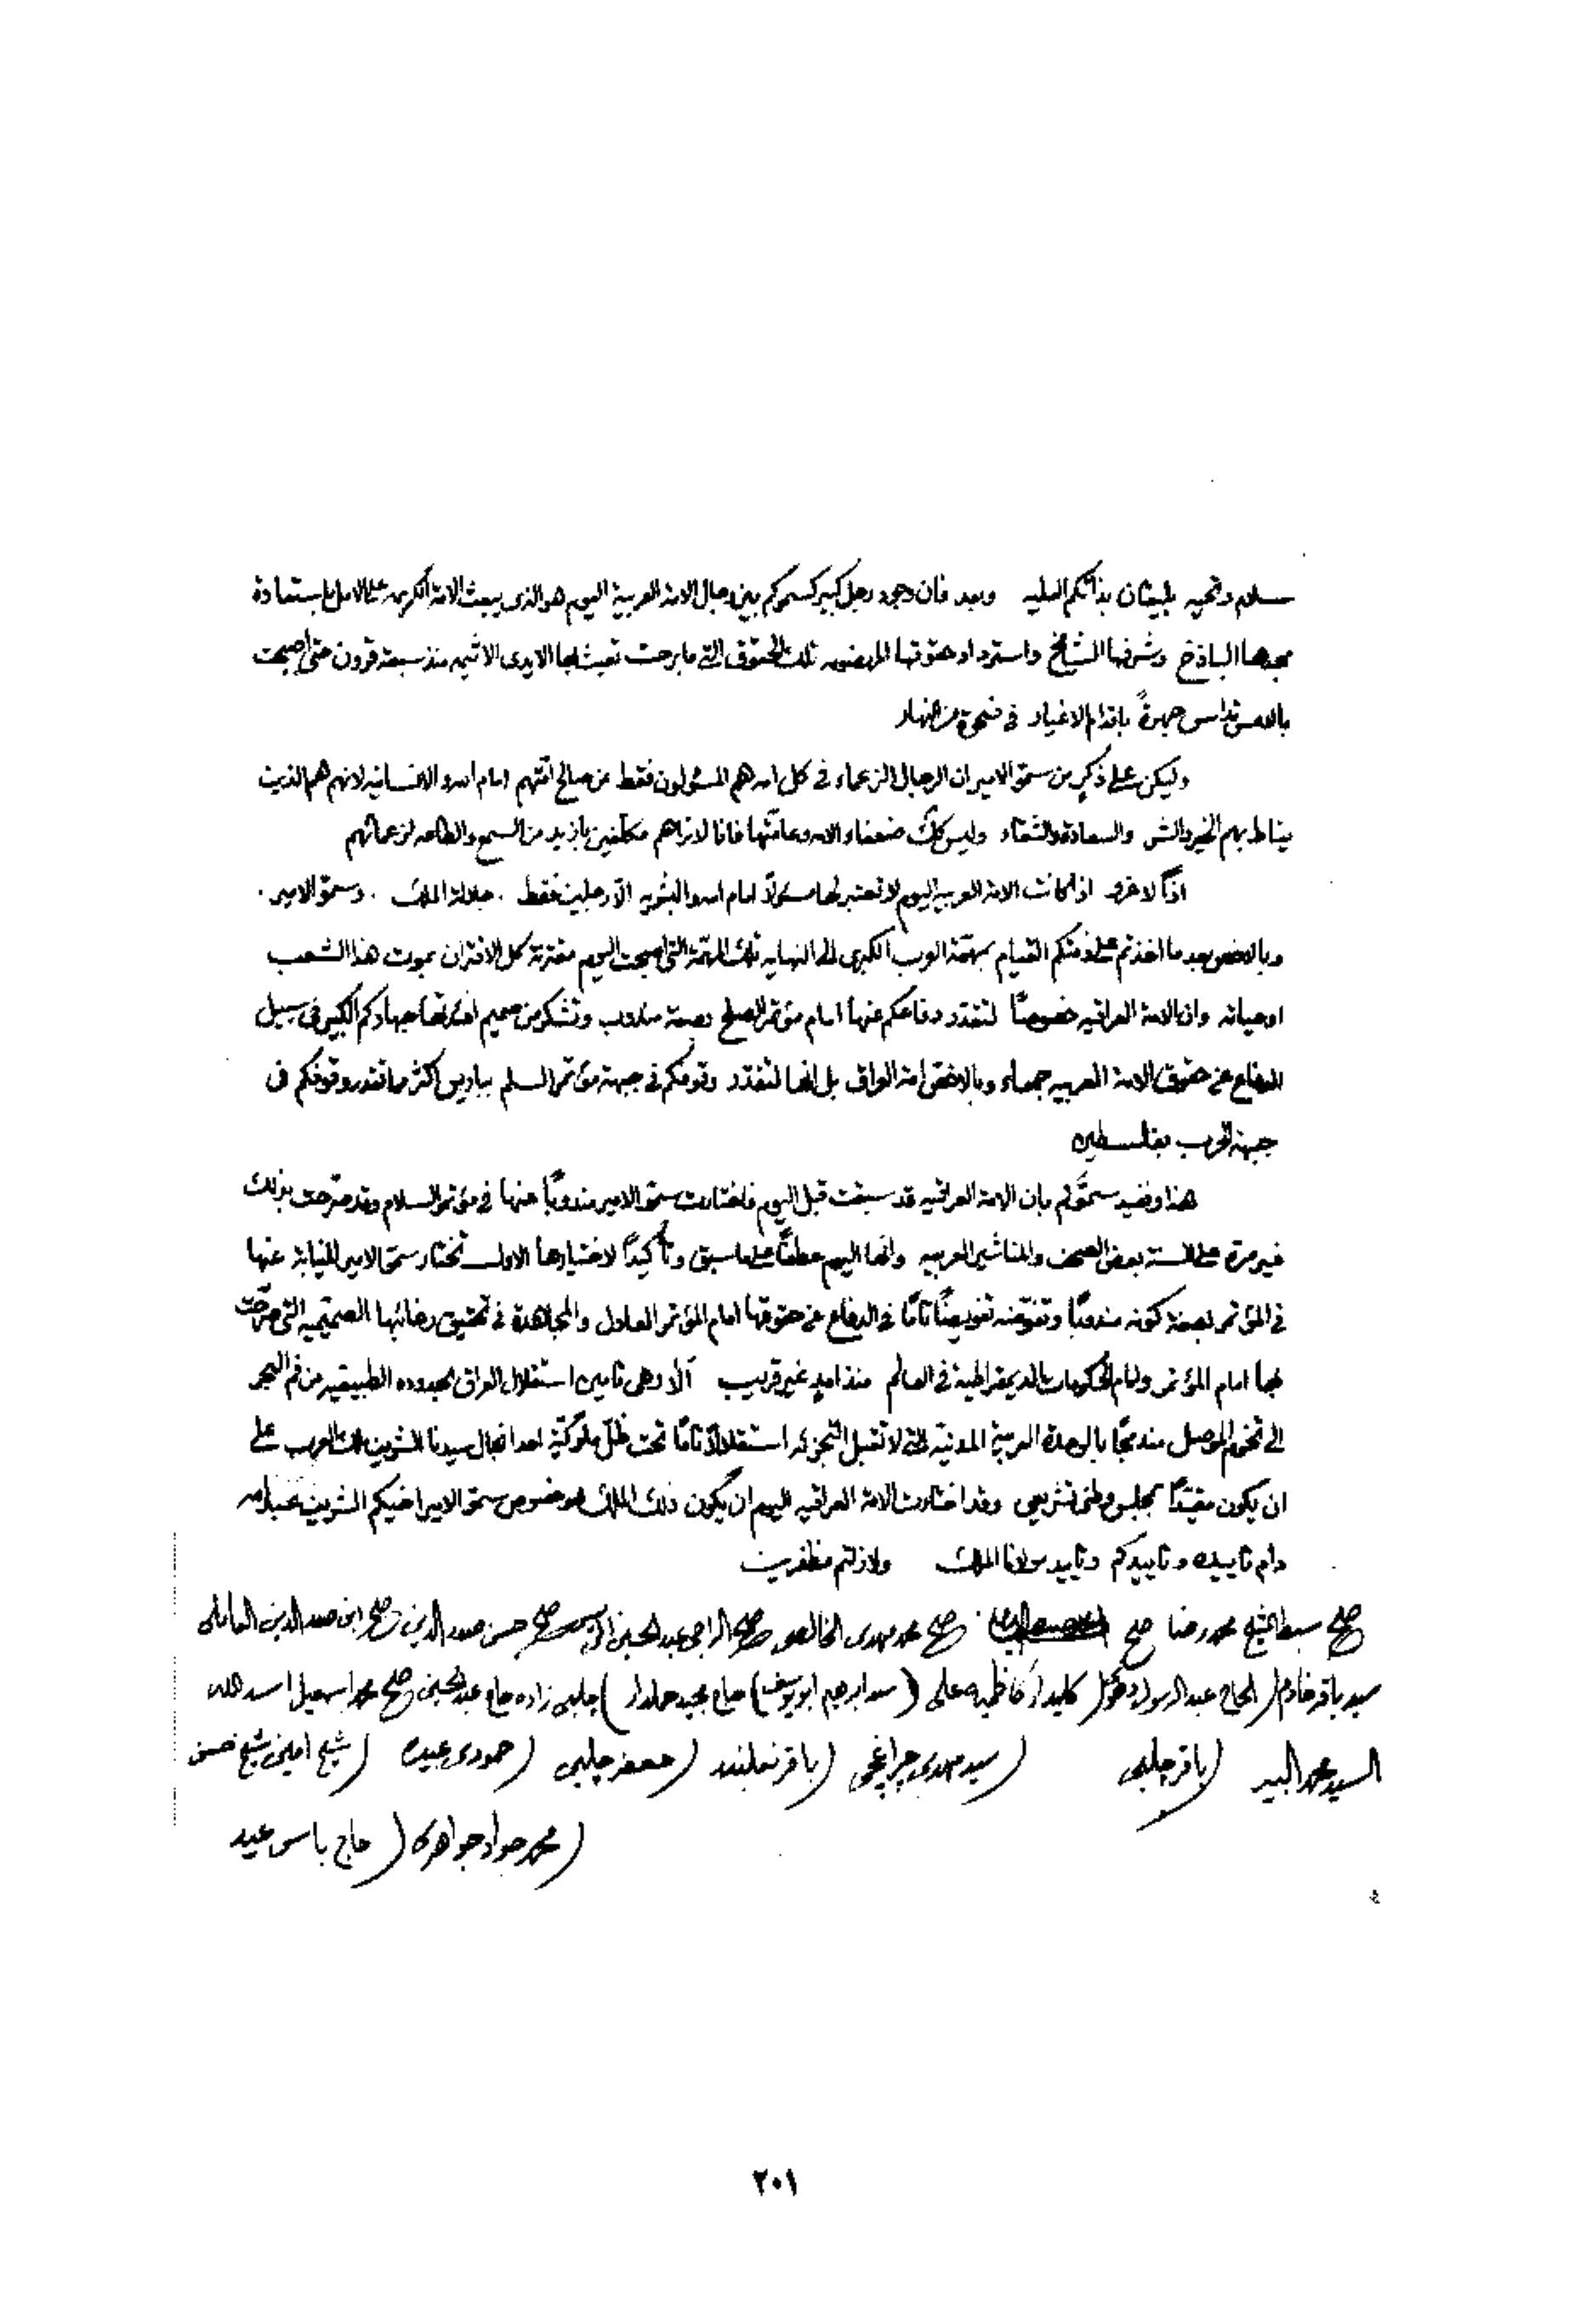 سلام وتحيه يليقان بذاتكم العليه وبعد فان وجود رجل كبير كسموكم بين رجال الامة العربية اليوم هو الذي يبعث الامة الكريمة على الامل باستعادة
مجدها الباذخ وشرفها الشامخ واسترداد حقوقها المهضومه تلك الحقوق التي ما برحت تعيث بها الايدي الاثيمه منذ سبعة قرون حتى اصبحت
بالامس تداس جهرةً باقدام الاغيار في ضحوة من النهار
وليكن على ذكرٍ من سموّ الامير ان الرجال الزعماء في كل امه هم المسئولون فقط عن صالح امّتهم امام الله والانسانيه لانهم هم الذين
يناط بهم الخير والشر والسعادة والشقاء وليس كذلك ضعفاء الامه وعامّتها فانا لا نراهم مكلّفين بازيد من السمع والطاعه لزعمائهم
اذاً لا غرو اذا كانت الامة العربية اليوم لا تعتبر لها مسئولاً امام الله والبشريه الّا رجلين فقط . جلالة الملك . وسموّ الامير .
وبالاخص بعد ما اخذتم على ذمتكم القيام بمهمّة العرب الكبرى الى النهايه تلك المهمّة التي اصبحت اليوم مقترنة كل الاقتران بموت هذا الشعب
او حياته وان الامة العراقيه خصوصاً لتقدّر دفاعكم عنها امام مؤتمر الصلح بصفة مندوب وتشكر من صميم افئدتها جهادكم الكبير في سبيل
الدفاع عن حقوق الامة العربيه جمعاء وبالاخصّ امة العراق بل انها لتقدّر وقوفكم في جبهة مؤتمر السلم بباريس اكثر مما تقدر وقوفكم في
جبهة الحرب بفلسطين
هذا ونفيد سموّكم بان الامة العراقيه قد سبقت قبل اليوم فاختارت سموّ الامير مندوباً عنها في مؤتمر السلام وقد صرّحت بذلك
غير مرة على السنة بعض الصحف والمناشير العربيه وانها اليوم عطفاً على ما سبق وتأكيداً لاختيارها الاول تختار سموّ الامير للنيابة عنها
في المؤتمر بصفة كونه مندوباً وتفوّضه تفويضاً تامّاً في الدفاع عن حقوقها امام المؤتمر العادل والمجاهدة في تحقيق رغائبها الصميميه التي صرّحت
بها امام المؤتمر وامام الحكومات الديمقراطية في العالم منذ امدٍ غير قريب ألا وهي تامين استقلال العراق بحدوده الطبيعيه من فم البحر
الى تخوم الموصل مندمجاً بالوحدة العربية المدنيّه التي لا تقبل التجزئه استقلالاً تامّاً تحت ظلّ ملوكيّة احد انجال سيدنا الشريف ملك العرب على
ان يكون مقيّداً بمجلس وطني تشريعي وقد اختارت الامة العراقيه اليوم ان يكون ذلك الملك هو خصوص سموّ الامير اخيكم الشريف عبدالله
دام تاييده وتاييدكم وتاييد مولانا الملك ولا زلتم مظفرين
صح سبط الشيخ محمد رضا صح صح محمد مهدي الخالصي صح الراجي عبدالحسين صح حسن صدر الدين صح ابن صدر الدين العاملي
سيد باقر خادم ( الحاج عبد الرسول ( كليدار كاظميه علي ( سيد ابرهيم ابو يوسف ) حاج مجيد حلدار ) چلبي زاده حاج عبدالحسين صح محمد اسمعيل اسد الله
السيد محمد ( باقر چلبي ( سيد مهدي چراغچي ( باقر نعلبند ( جعفر چلبي ( حمودي عبيده ( شيخ امين شيخ حسن
( محمد جواد جواهرکا ( حاج ياس عبيد
٢٠١